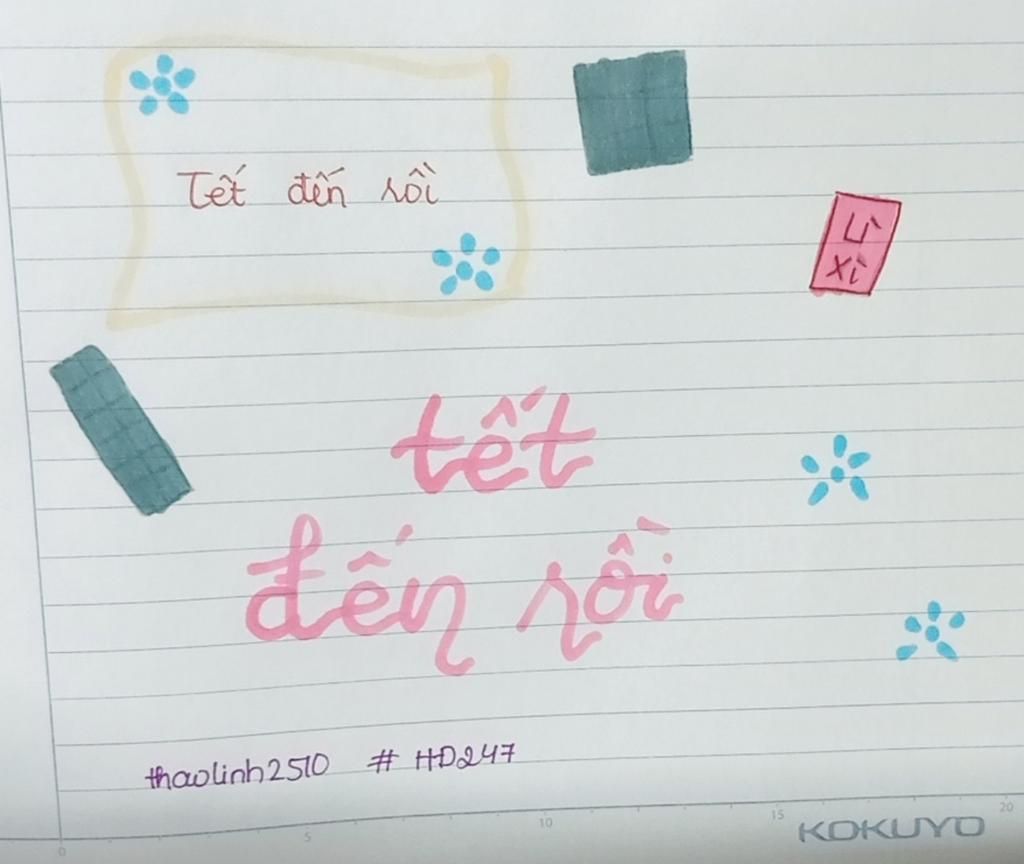 Tết đến rồi
Lì
xì
tết
đến rồi
thaolinh2510 # HD247
0 5 10 15 20
KOKUYO